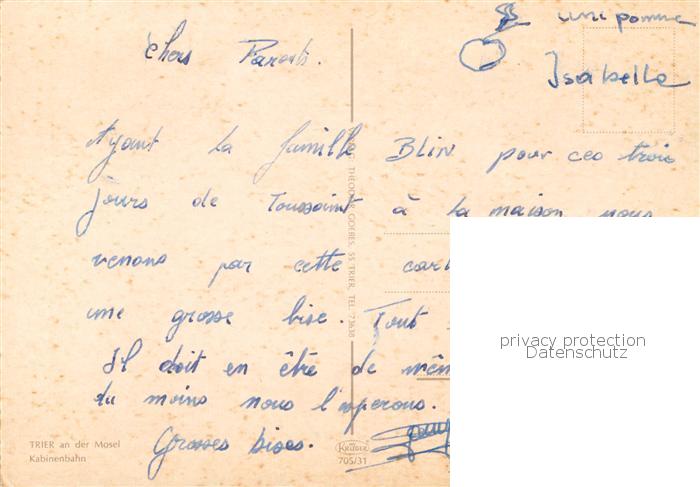 une pomme
Isabelle
Chers Parents.
Ayant la famille BLIN pour ces trois
jours de Toussaint à la maison nous
venons par cette
une grosse bise. Tout
Il doit en être de
du moins nous l'esperons.
Grosses bises.
TRIER an der Mosel
Kabinenbahn
KRÜGER
705/31
THEODOR GOEBES, 55 TRIER, TEL. 73638
privacy protection
Datenschutz